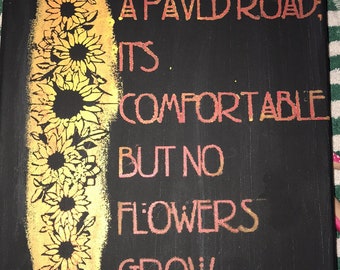 A PAVED ROAD;
IT'S
COMFORTABLE
BUT NO
FLOWERS
GROW